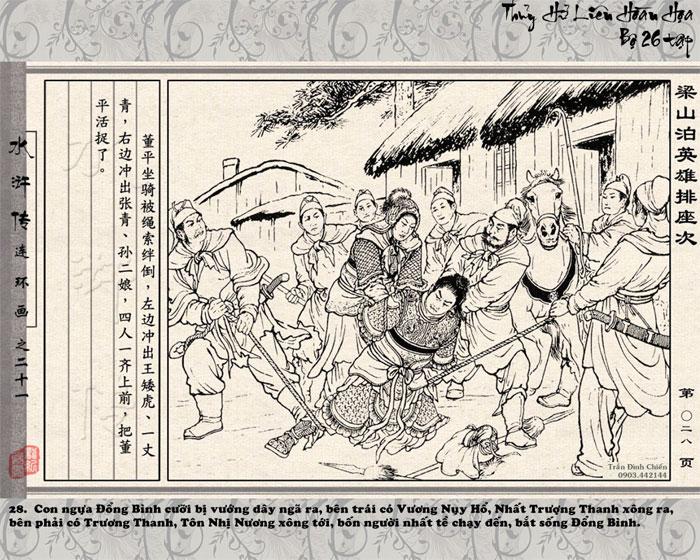 Thủy Hử Liên Hoàn Họa
Bộ 26 tập
梁山泊英雄排座次
第〇二八页
董平坐骑被绳索绊倒,左边冲出王矮虎、一丈
青,右边冲出张青、孙二娘,四人一齐上前,把董
平活捉了。
水浒传连环画之二十一
Trần Đình Chiến
0903.442144
28. Con ngựa Đổng Bình cưỡi bị vướng dây ngã ra, bên trái có Vương Nụy Hổ, Nhất Trượng Thanh xông ra,
bên phải có Trương Thanh, Tôn Nhị Nương xông tới, bốn người nhất tề chạy đến, bắt sống Đổng Bình.